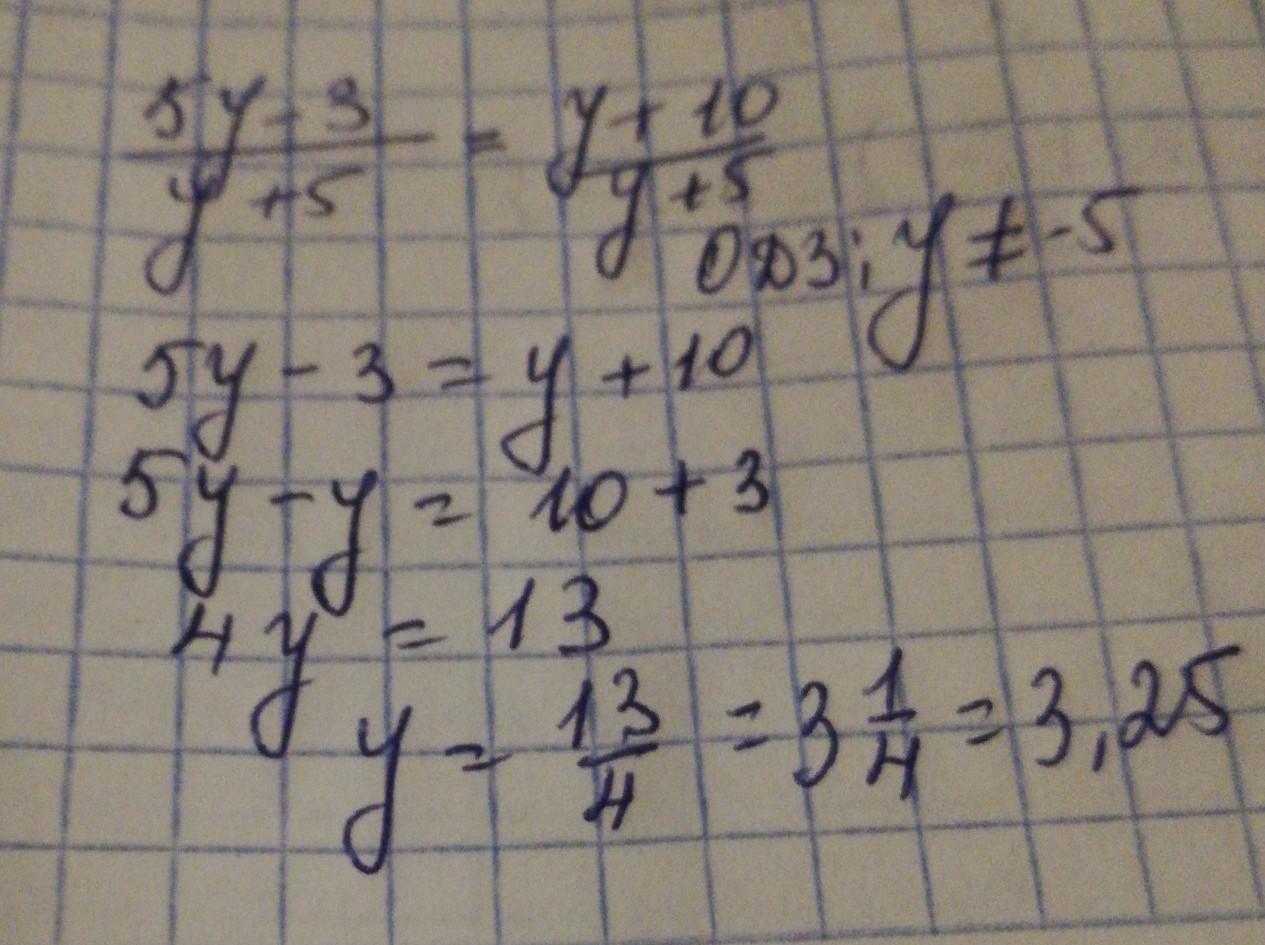 5y - 3 / y + 5 = y + 10 / y + 5
ОДЗ: y ≠ -5
5y - 3 = y + 10
5y - y = 10 + 3
4y = 13
y = 13/4 = 3 1/4 = 3,25